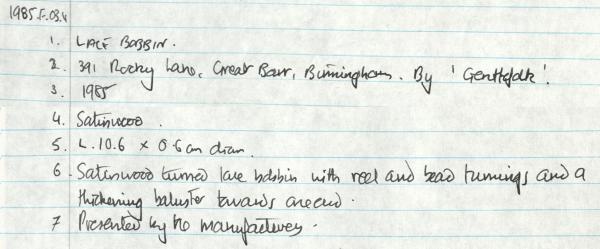 1985.F.03.4
1. LACE BOBBIN.
2. 391 Rocky Lane, Great Barr, Birmingham. By 'Gentlefolk'.
3. 1985
4. Satinwood.
5. L. 10.6 x 0.6cm diam.
6. Satinwood turned lace bobbin with reel and bead turnings and a
thickening baluster towards one end.
7 Presented by the manufacturers.